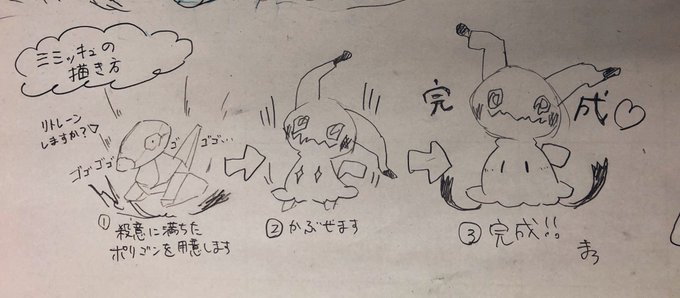 ミミッキュの
描き方
リトレーン
しますか？♡
ゴゴゴゴ
ゴゴ
ゴゴ…
① 殺意に満ちた
ポリゴンを用意します
② かぶせます
完
成♡
③ 完成!!
まろ